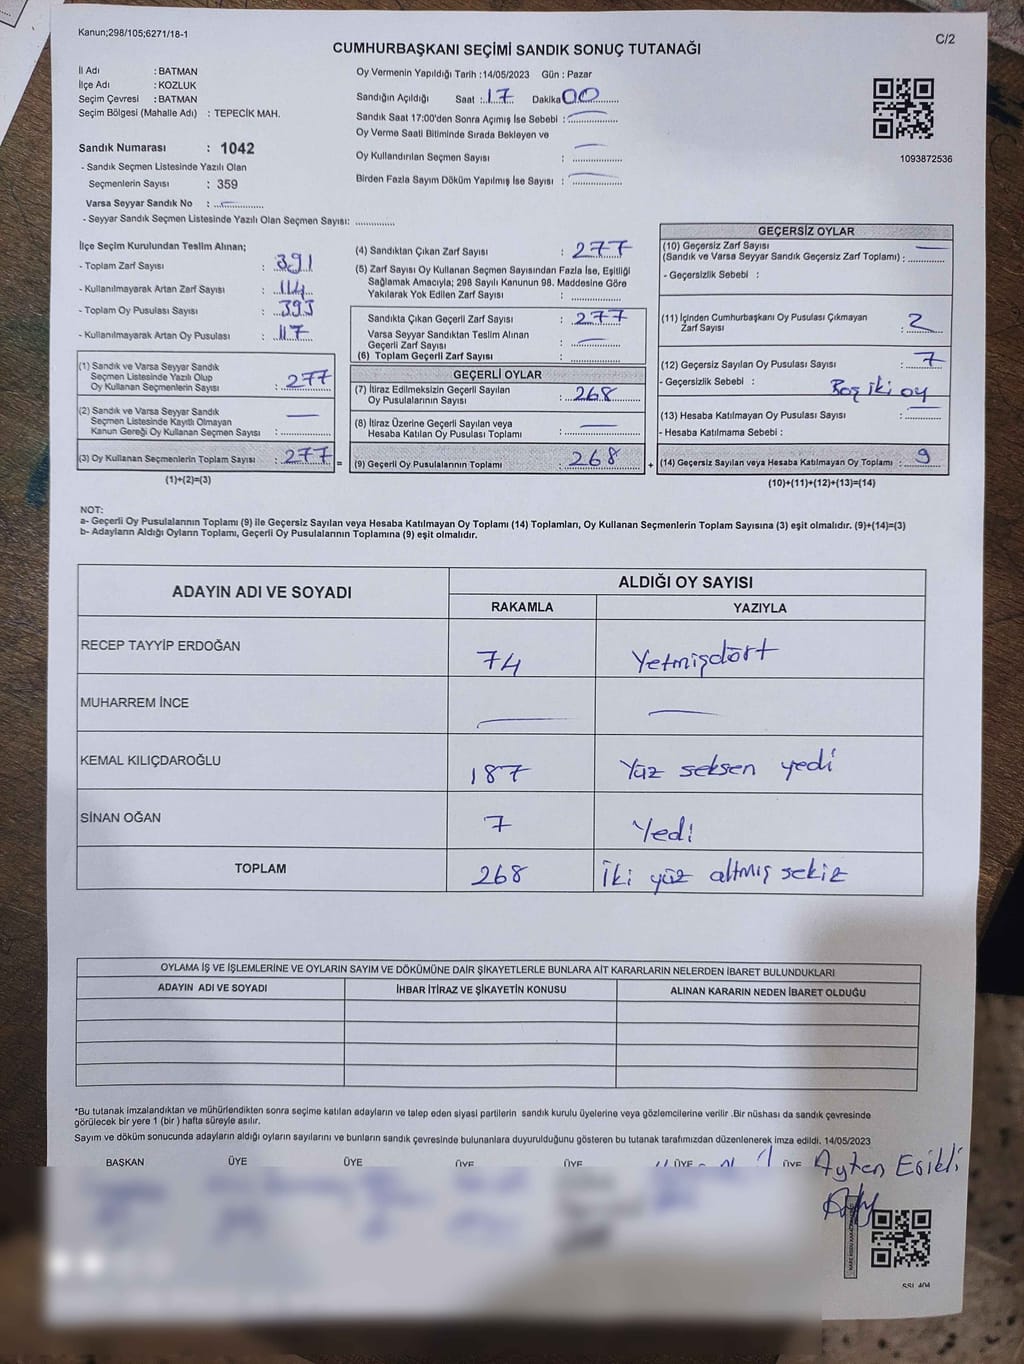 Kanun;298/105;6271/18-1
C/2
CUMHURBAŞKANI SEÇİMİ SANDIK SONUÇ TUTANAĞI
İl Adı : BATMAN
İlçe Adı : KOZLUK
Seçim Çevresi : BATMAN
Seçim Bölgesi (Mahalle Adı) : TEPECİK MAH.
Sandık Numarası : 1042
- Sandık Seçmen Listesinde Yazılı Olan
Seçmenlerin Sayısı : 359
Varsa Seyyar Sandık No :
- Seyyar Sandık Seçmen Listesinde Yazılı Olan Seçmen Sayısı:
Oy Vermenin Yapıldığı Tarih :14/05/2023 Gün : Pazar
Sandığın Açıldığı Saat : 17 Dakika 00
Sandık Saat 17:00'den Sonra Açımış İse Sebebi :
Oy Verme Saati Bitiminde Sırada Bekleyen ve
Oy Kullandırılan Seçmen Sayısı :
Birden Fazla Sayım Döküm Yapılmış İse Sayısı :
1093872536
İlçe Seçim Kurulundan Teslim Alınan;
- Toplam Zarf Sayısı : 391
- Kullanılmayarak Artan Zarf Sayısı : 114
- Toplam Oy Pusulası Sayısı : 393
- Kullanılmayarak Artan Oy Pusulası : 117
(1) Sandık ve Varsa Seyyar Sandık
Seçmen Listesinde Yazılı Olup
Oy Kullanan Seçmenlerin Sayısı : 277
(2) Sandık ve Varsa Seyyar Sandık
Seçmen Listesinde Kayıtlı Olmayan
Kanun Gereği Oy Kullanan Seçmen Sayısı :
(3) Oy Kullanan Seçmenlerin Toplam Sayısı : 277 =
(1)+(2)=(3)
(4) Sandıktan Çıkan Zarf Sayısı : 277
(5) Zarf Sayısı Oy Kullanan Seçmen Sayısından Fazla İse, Eşitliği
Sağlamak Amacıyla; 298 Sayılı Kanunun 98. Maddesine Göre
Yakılarak Yok Edilen Zarf Sayısı :
Sandıkta Çıkan Geçerli Zarf Sayısı : 277
Varsa Seyyar Sandıktan Teslim Alınan
Geçerli Zarf Sayısı :
(6) Toplam Geçerli Zarf Sayısı :
GEÇERLİ OYLAR
(7) İtiraz Edilmeksizin Geçerli Sayılan
Oy Pusulalarının Sayısı : 268
(8) İtiraz Üzerine Geçerli Sayılan veya
Hesaba Katılan Oy Pusulası Toplamı :
(9) Geçerli Oy Pusulalarının Toplamı : 268 +
GEÇERSİZ OYLAR
(10) Geçersiz Zarf Sayısı
(Sandık ve Varsa Seyyar Sandık Geçersiz Zarf Toplamı) :
- Geçersizlik Sebebi :
(11) İçinden Cumhurbaşkanı Oy Pusulası Çıkmayan
Zarf Sayısı : 2
(12) Geçersiz Sayılan Oy Pusulası Sayısı : 7
- Geçersizlik Sebebi : Boş iki oy
(13) Hesaba Katılmayan Oy Pusulası Sayısı :
- Hesaba Katılmama Sebebi :
(14) Geçersiz Sayılan veya Hesaba Katılmayan Oy Toplamı : 9
(10)+(11)+(12)+(13)=(14)
NOT:
a- Geçerli Oy Pusulalarının Toplamı (9) ile Geçersiz Sayılan veya Hesaba Katılmayan Oy Toplamı (14) Toplamları, Oy Kullanan Seçmenlerin Toplam Sayısına (3) eşit olmalıdır. (9)+(14)=(3)
b- Adayların Aldığı Oyların Toplamı, Geçerli Oy Pusulalarının Toplamına (9) eşit olmalıdır.
ADAYIN ADI VE SOYADI
ALDIĞI OY SAYISI
RAKAMLA YAZIYLA
RECEP TAYYİP ERDOĞAN 74 Yetmişdört
MUHARREM İNCE
KEMAL KILIÇDAROĞLU 187 Yüz seksen yedi
SİNAN OĞAN 7 Yedi
TOPLAM 268 İki yüz altmış sekiz
OYLAMA İŞ VE İŞLEMLERİNE VE OYLARIN SAYIM VE DÖKÜMÜNE DAİR ŞİKAYETLERLE BUNLARA AİT KARARLARIN NELERDEN İBARET BULUNDUKLARI
ADAYIN ADI VE SOYADI İHBAR İTİRAZ VE ŞİKAYETİN KONUSU ALINAN KARARIN NEDEN İBARET OLDUĞU
*Bu tutanak imzalandıktan ve mühürlendikten sonra seçime katılan adayların ve talep eden siyasi partilerin sandık kurulu üyelerine veya gözlemcilerine verilir .Bir nüshası da sandık çevresinde
görülecek bir yere 1 (bir ) hafta süreyle asılır.
Sayım ve döküm sonucunda adayların aldığı oyların sayılarını ve bunların sandık çevresinde bulunanlara duyurulduğunu gösteren bu tutanak tarafımızdan düzenlenerek imza edildi. 14/05/2023
BAŞKAN ÜYE ÜYE ÜYE ÜYE ÜYE ÜYE Ayten Esikli